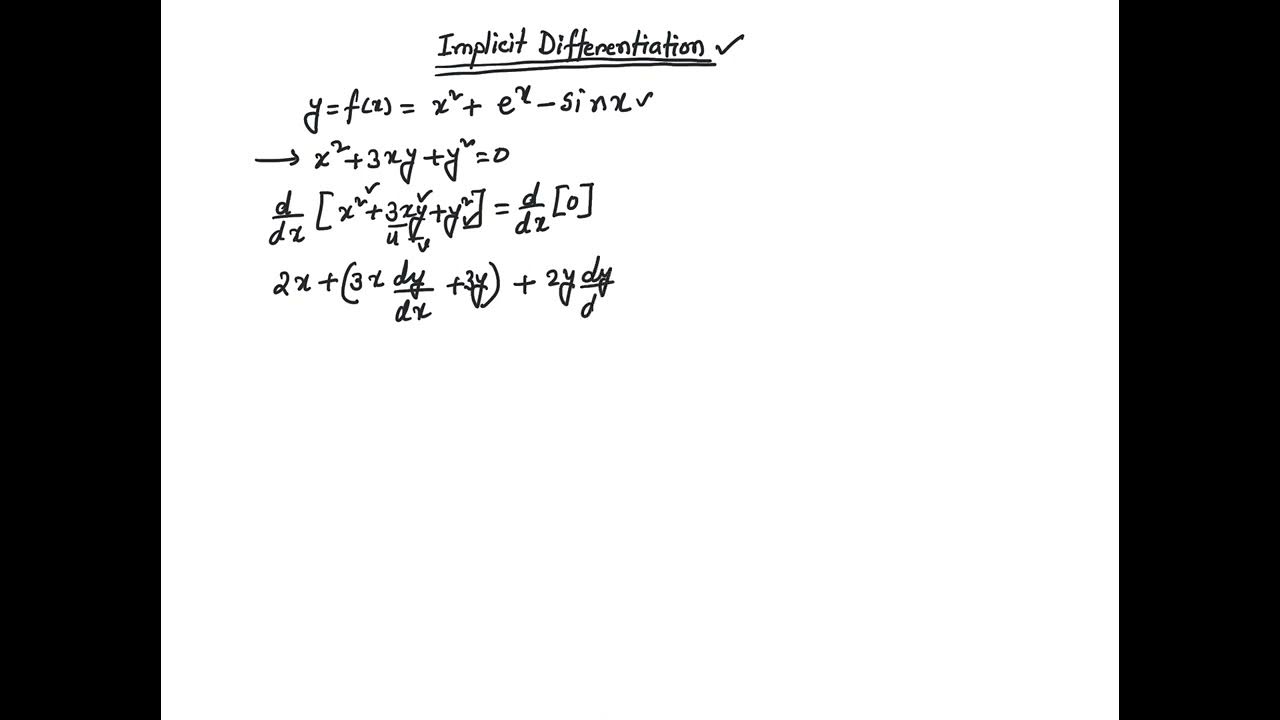 Implicit Differentiation ✓
y = f(x) = x² + eˣ - sin x ✓
→ x² + 3xy + y² = 0
d/dx [x² ✓ + 3xy ✓ + y² ✓] = d/dx [0]
u v
2x + (3x dy/dx + 3y) + 2y dy/d